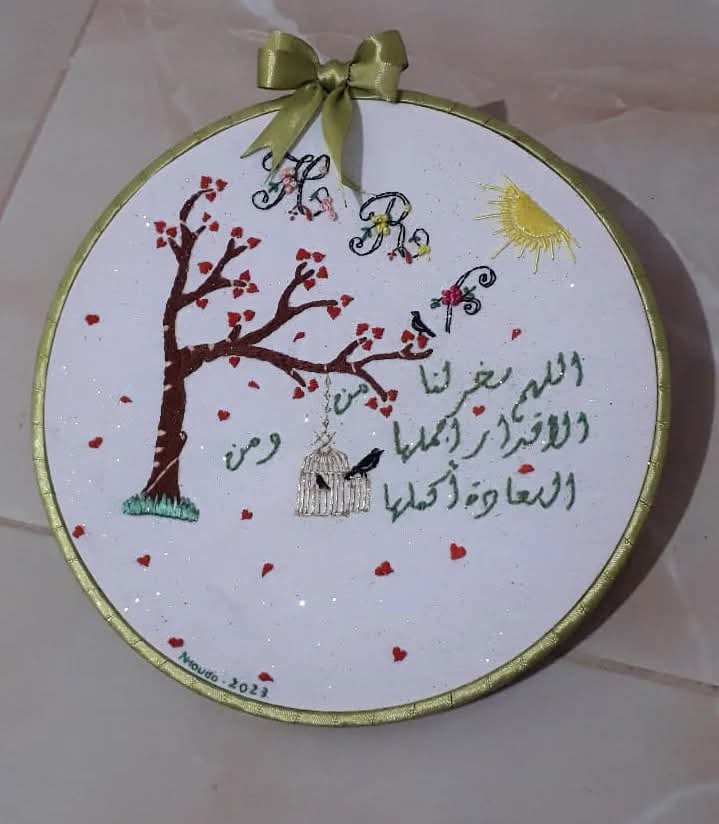 H
R
f
اللهم سخر لنا من
الأقدار اجملها ومن
السعادة أكملها
Houda. 2023